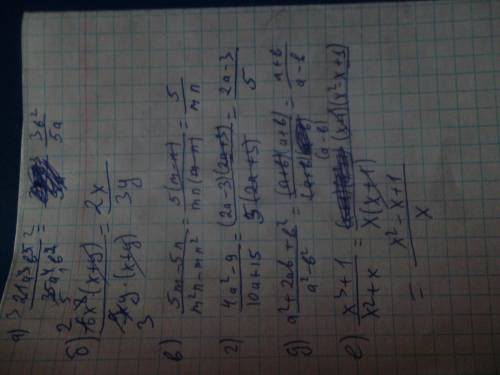 а) 21a³b⁵ / 35a⁴b² = 3b² / 5a
б) 16x³(x+y) / 9xy·(x+y) = 2x / 3y
в) 5m-5n / m²n-mn² = 5(m-n) / mn(m-n) = 5 / mn
г) 4a²-9 / 10a+15 = (2a-3)(2a+3) / 5(2a+3) = 2a-3 / 5
д) a²+2ab+b² / a²-b² = (a+b)(a+b) / (a+b)(a-b) = a+b / a-b
е) x³+1 / x²+x = (x+1)(x²-x+1) / x(x+1)
= x²-x+1 / x